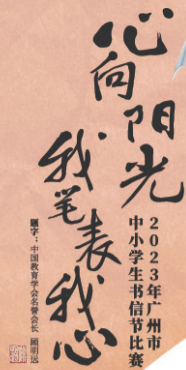 心向阳光
我笔表我心
2023年广州市
中小学生书信节比赛
题字：中国教育学会名誉会长 顾明远